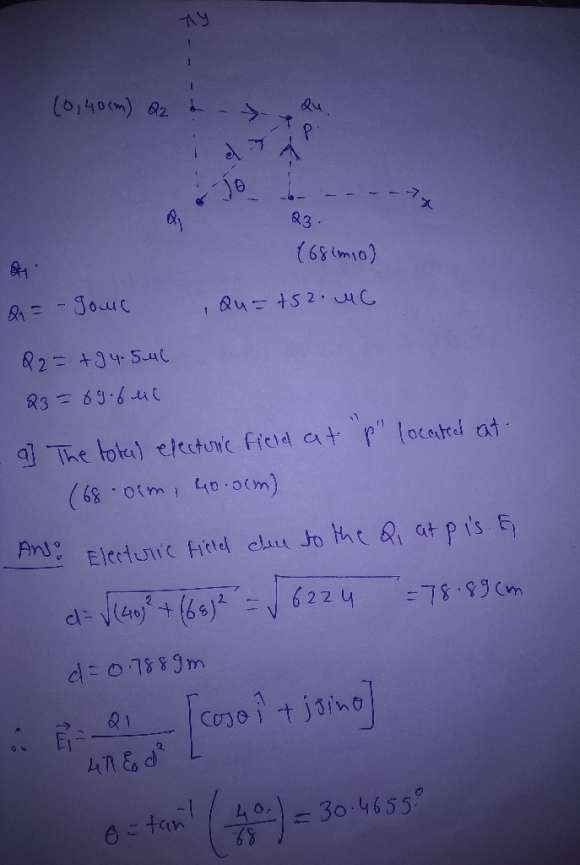 y
(0,40cm) Q2
Q4
P
d
θ
x
Q1
Q3.
(68cm,0)
Q1 = - 90μC , Q4 = +52. μC
Q2 = +94.5μC
Q3 = 69.6 μC
a] The total electric field at "p" located at.
(68.0cm, 40.0cm)
Ans: Electric field due to the Q1 at p is E1
d = √(40)² + (68)² = √6224 = 78.89 cm
d = 0.7889m
∴ E⃗1 = Q1 / 4πε0d² [cosθ î + j sinθ]
θ = tan⁻¹ (40./68) = 30.4655°